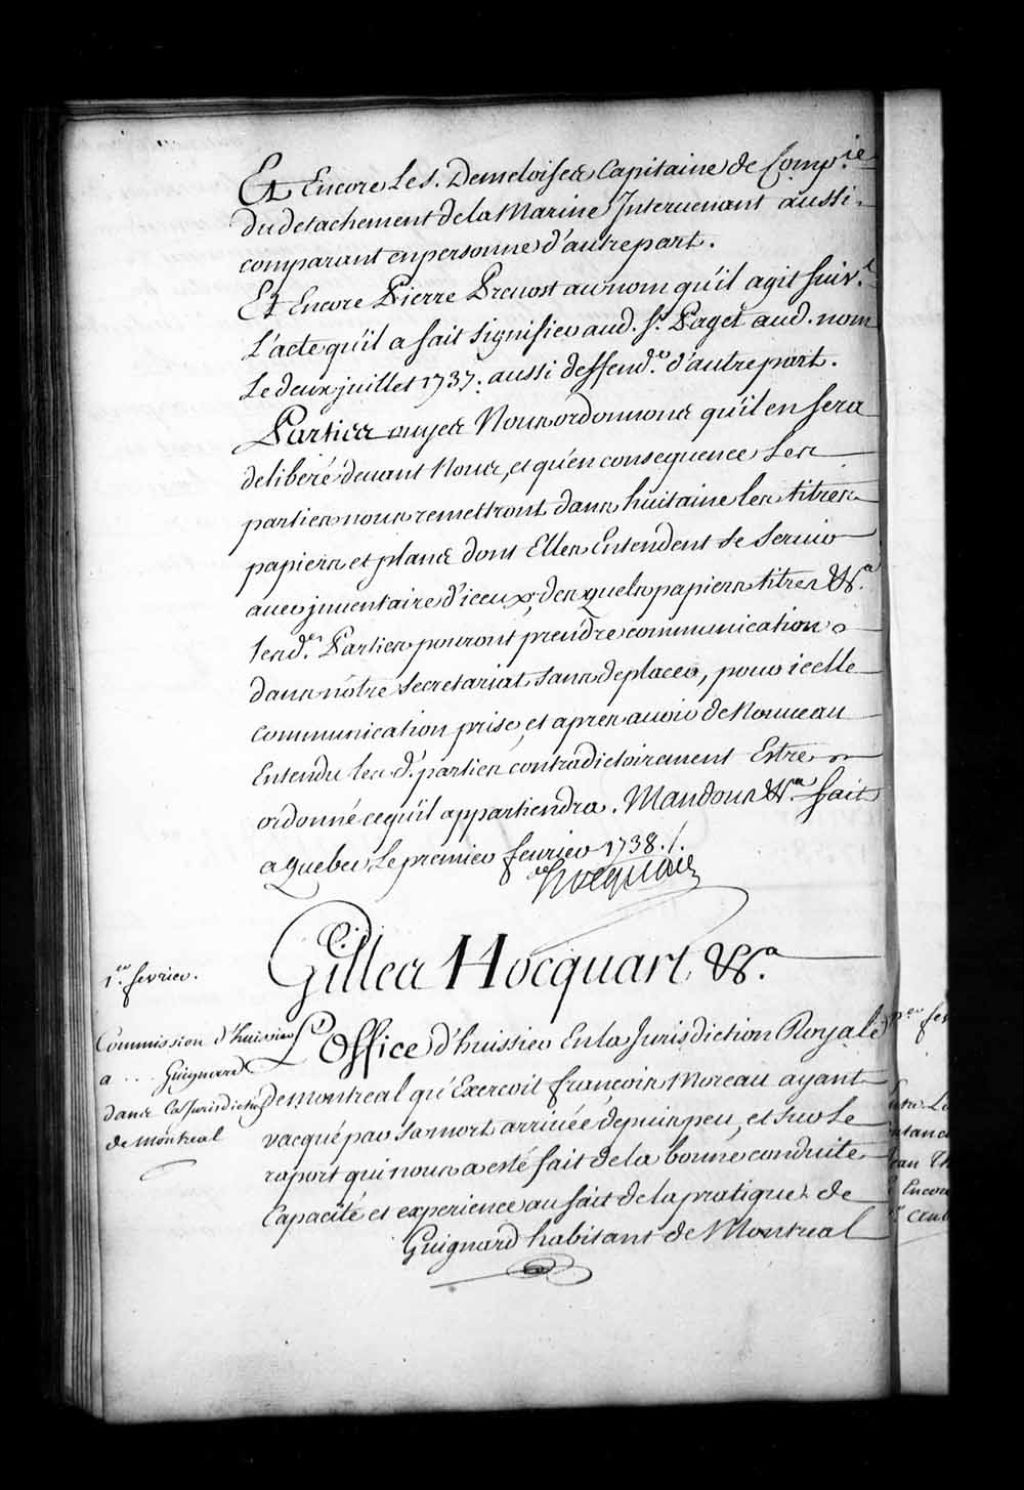 Et Encore Le s. Demeloises Capitaine de Comp.ie
du detachement de la Marine Interuenant aussi
comparant en personne d'autre part.
Et Encore Pierre Preuost au nom qu'il agit suiv.t
L'acte qu'il a fait signifier aud. s.r Paget aud. nom
Le deux juillet 1737. aussi deffend.r d'autre part.
Parties ouyes Nous ordonnons qu'il en sera
delibéré deuant Nous, et qu'en consequence Les
parties nous remettront dans huitaine les titres
papiers et plans dont Elles Entendent se seruir
auec jnuentaire d'iceux, desquels papiers titres &c.a
lesd.es Parties pouront prendre communication
dans nôtre secretariat sans deplacer, pour icelle
communication prise, et apres auoir de Nouueau
Entendu les d. parties contradictoirement Estre
ordonné ce qu'il appartiendra. Mandons &c.a fait
a Quebec Le premier feurier 1738./.
Hocquart
Gilles Hocquart, &c.a
1.er fevrier.
Commission d'huissier
a ... Guignard
dans la Jurisdiction
de Montreal
L'Office d'huissier En la Jurisdiction Royale
de Montreal qu'Exerçoit françois Moreau ayant
vacqué par sa mort arriuée depuis peu, et sur Le
raport qui nous a esté fait de la bonne conduite
Capacité et experience au fait de la pratique de
Guignard habitant de Montreal